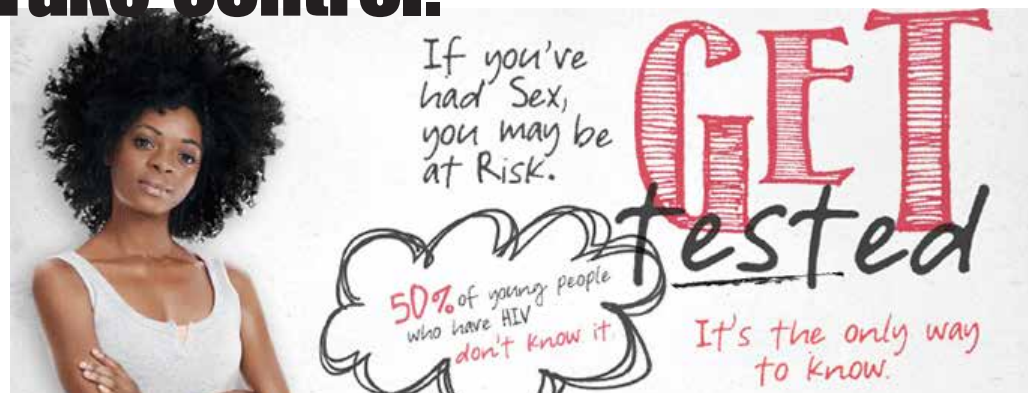 Take Control.
If you've
had Sex,
you may be
at Risk.
GET
tested
50% of young people
who have HIV
don't know it.
It's the only way
to know.